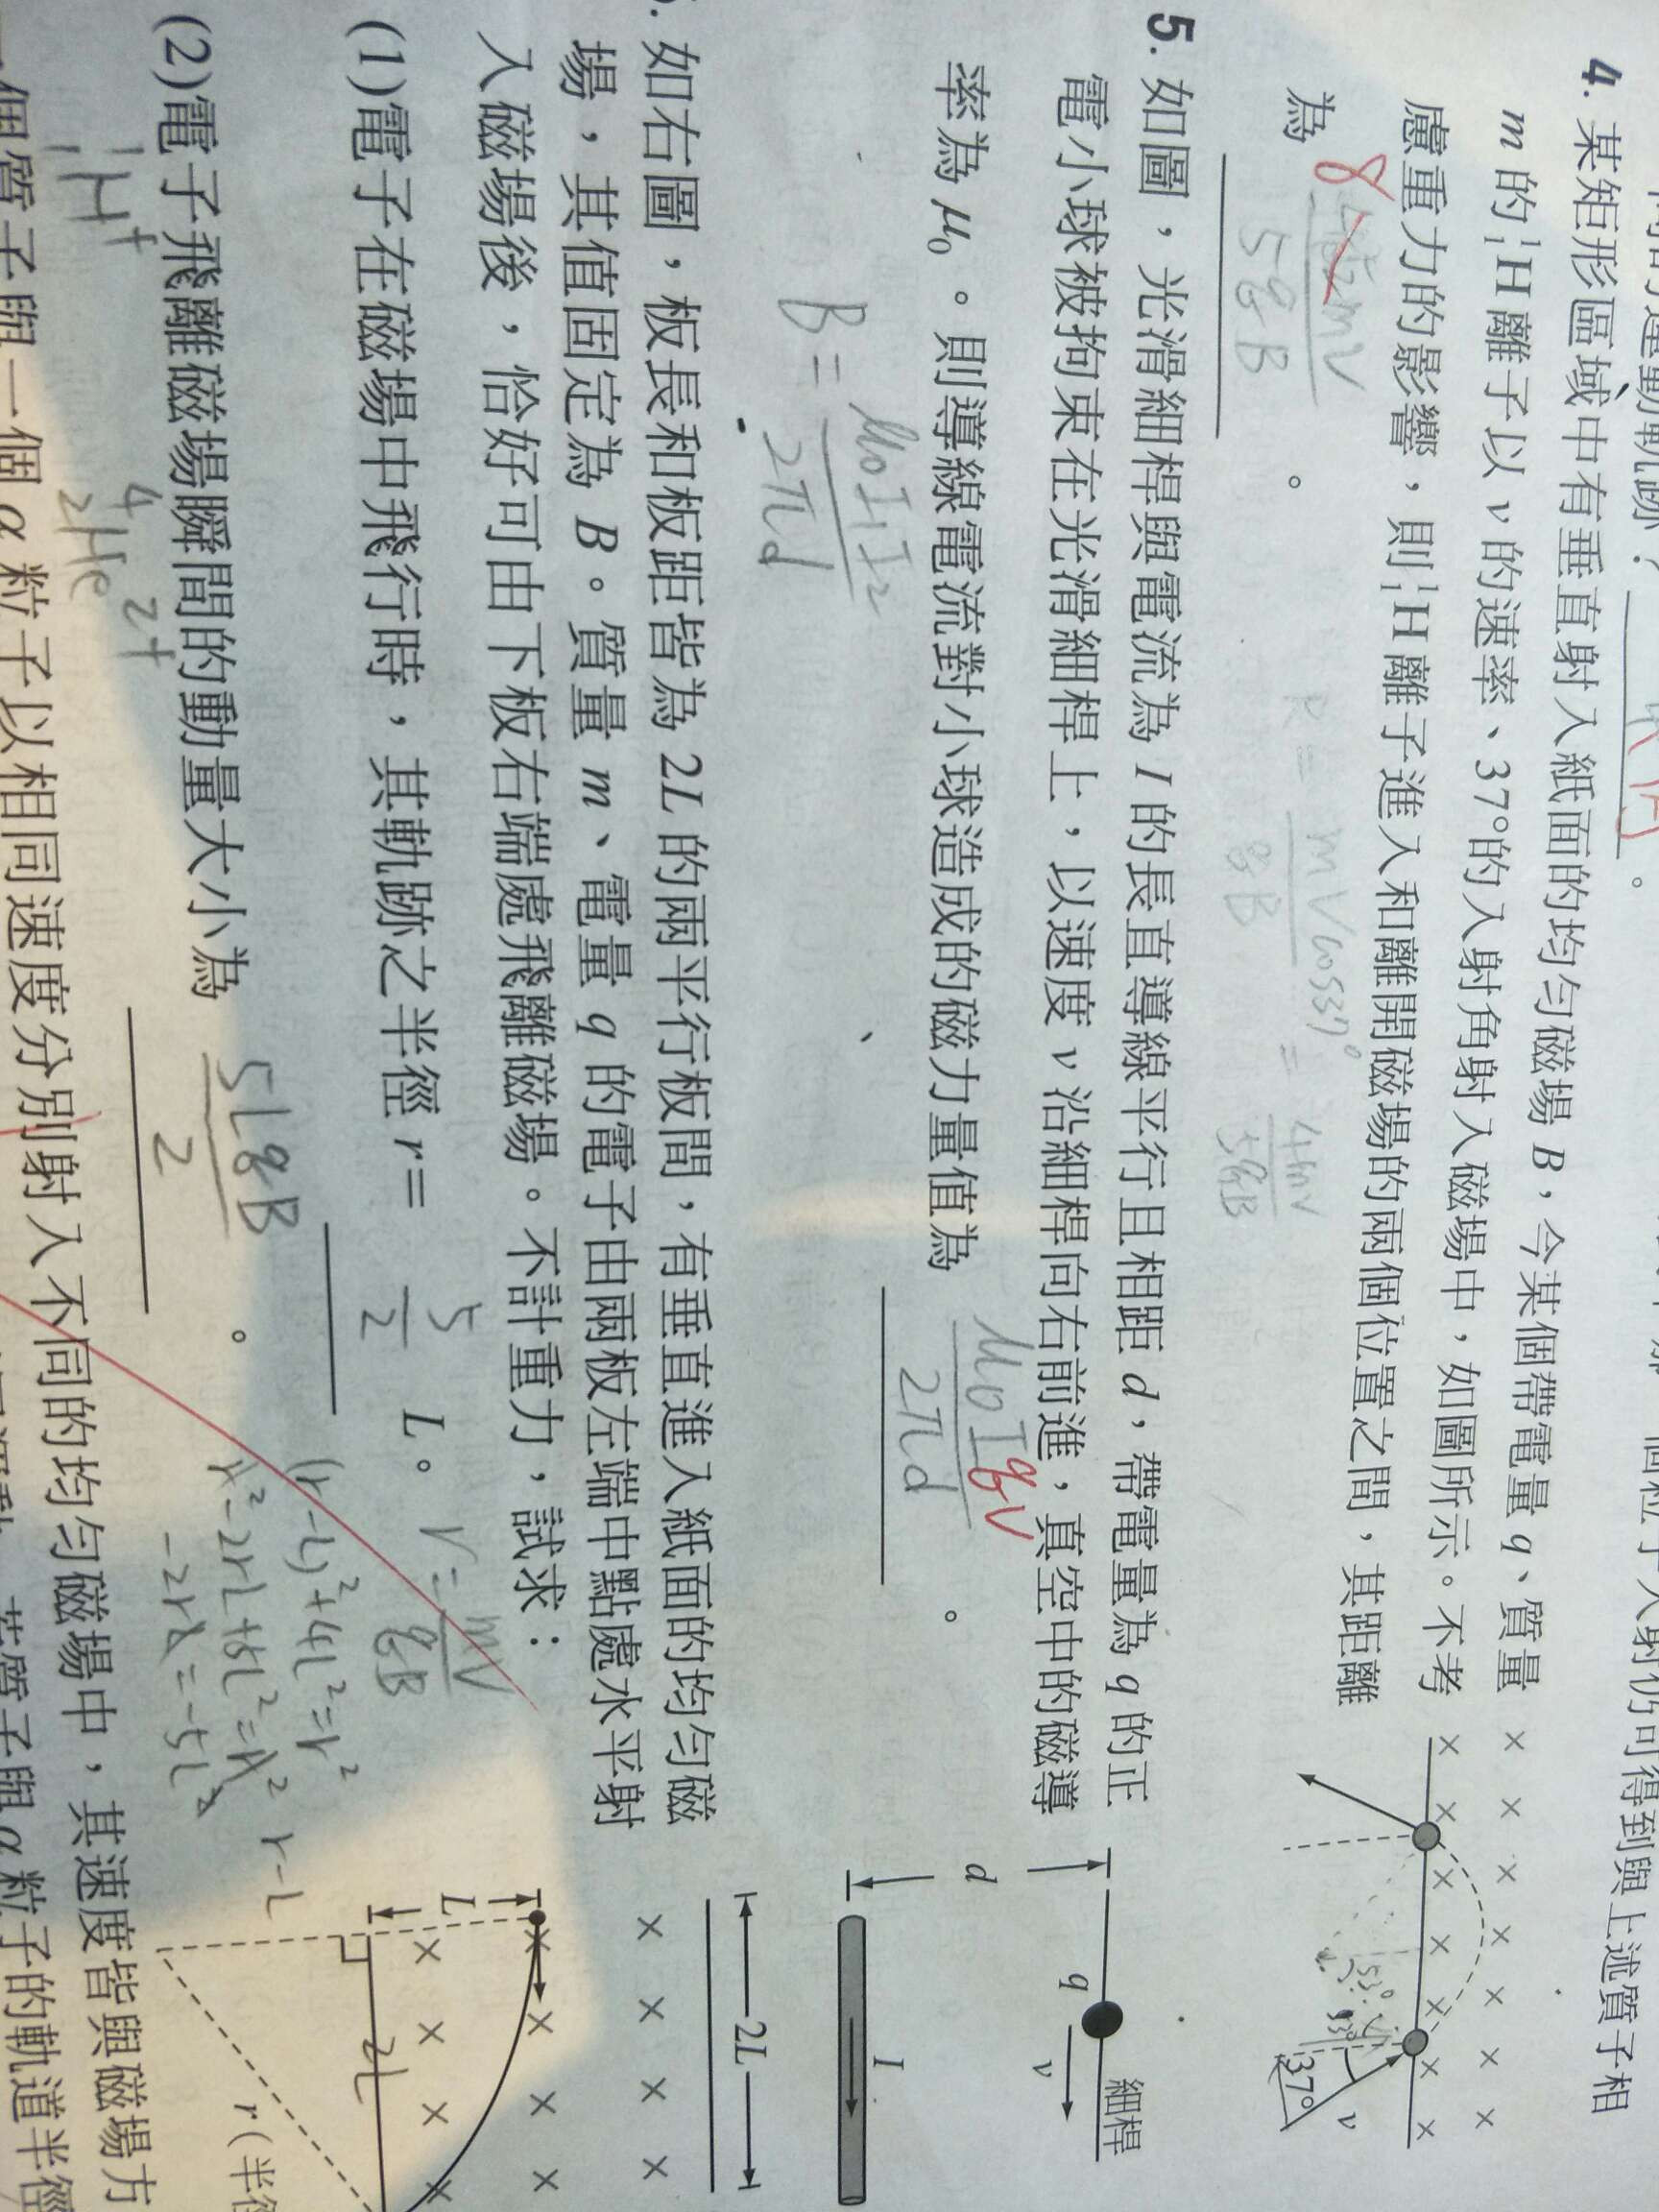 4. 某矩形區域中有垂直射入紙面的均勻磁場 B，今某個帶電量 q、質量
m 的 ¹₁H 離子以 v 的速率、37°的入射角射入磁場中，如圖所示。不考
慮重力的影響，則 ¹₁H 離子進入和離開磁場的兩個位置之間，其距離
為 8 mV / 5qB 。
R = mVcos37° / qB = 4mV / 5qB
37°
v
5. 如圖，光滑細桿與電流為 I 的長直導線平行且相距 d，帶電量為 q 的正
電小球被拘束在光滑細桿上，以速度 v 沿細桿向右前進，真空中的磁導
率為 μ₀。則導線電流對小球造成的磁力量值為 μ₀Iqv / 2πd 。
B = μ₀I₁I₂ / 2πd
細桿
q
v
d
I
. 如右圖，板長和板距皆為 2L 的兩平行板間，有垂直進入紙面的均勻磁
場，其值固定為 B。質量 m、電量 q 的電子由兩板左端中點處水平射
入磁場後，恰好可由下板右端處飛離磁場。不計重力，試求：
(1)電子在磁場中飛行時，其軌跡之半徑 r= 5/2 L。 r = mV / qB
(2)電子飛離磁場瞬間的動量大小為 5LqB / 2 。
(r-L)²+4L²=r²
r²-2rL+5L²=r²
-2rL=-5L²
r-L
2L
L
2L
r(半徑
¹₁H⁺
⁴₂He²⁺
一個質子與一個 α 粒子以相同速度分別射入不同的均勻磁場中，其速度皆與磁場方